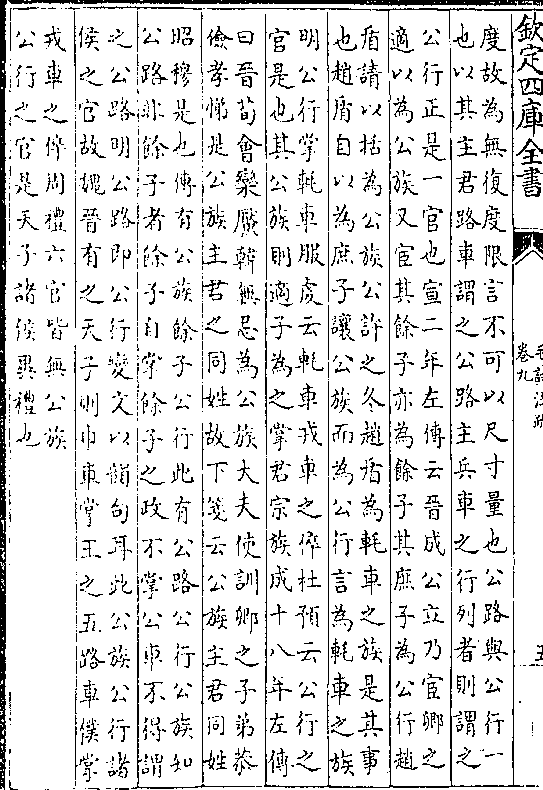 欽定四庫全書
毛詩注疏
卷九
五
度故為無復度限言不可以尺寸量也公路與公行一
也以其主君路車謂之公路主兵車之行列者則謂之
公行正是一官也宣二年左傳云晉成公立乃宦卿之
適以為公族又宦其餘子亦為餘子其庶子為公行趙
盾請以括為公族公許之冬趙盾為軞車之族是其事
也趙盾自以為庶子讓公族而為公行言為軞車之族
明公行掌軞車服虔云軞車戎車之倅杜預云公行之
官是也其公族則適子為之掌君宗族成十八年左傳
曰晉荀會欒黶韓無忌為公族大夫使訓卿之子弟恭
儉孝悌是公族主君之同姓故下箋云公族主君同姓
昭穆是也傳有公族餘子公行此有公路公行公族知
公路非餘子者餘子自掌餘子之政不掌公車不得謂
之公路明公路即公行變文以韻句耳此公族公行諸
侯之官故魏晉有之天子則巾車掌王之五路車僕掌
戎車之倅周禮六官皆無公族
公行之官是天子諸侯異禮也